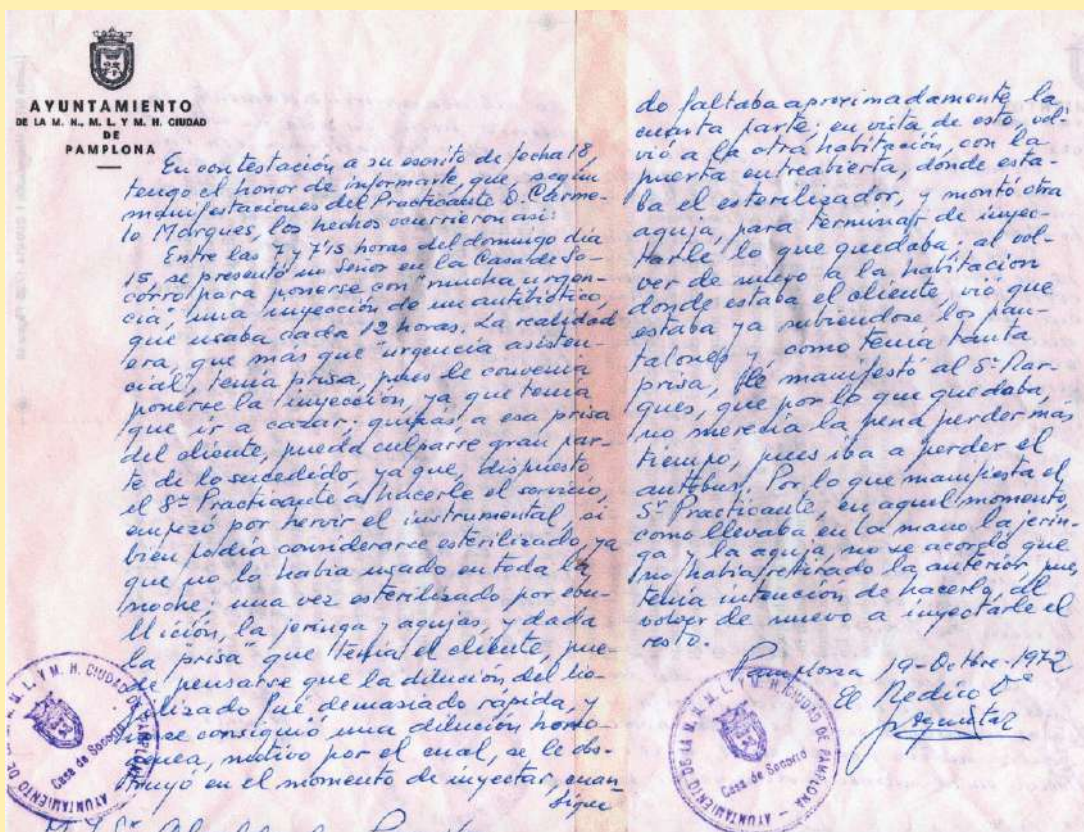 AYUNTAMIENTO
DE LA M. N., M. L. Y M. H. CIUDAD
DE
PAMPLONA
En contestación a su escrito de fecha 18,
tengo el honor de informarle, que, según
manifestaciones del Practicante D. Carme-
lo Marques, los hechos ocurrieron así:
Entre las 7 y 7'15 horas del domingo día
15, se presentó un Señor en la Casa de So-
corro para ponerse con "mucha urgen-
cia", una inyección de un antibiótico,
que usaba cada 12 horas. La realidad
era, que más que "urgencia asisten-
cial", tenía prisa, pues le convenía
ponerse la inyección, ya que tenía
que ir a cazar; quizás, a esa prisa
del cliente, pueda culparse gran par-
te de lo sucedido, ya que, dispuesto
el Sr Practicante a hacerle el servicio,
empezó por hervir el instrumental, si
bien podía considerarse esterilizado, ya
que no lo había usado en toda la
noche; una vez esterilizado por ebu-
llición, la jeringa y agujas, y dada
la "prisa" que tenía el cliente, pue-
de pensarse que la dilución del lio-
filizado fué demasiado rápida, y
no se consiguió una dilución homo-
genea, motivo por el cual, se le obs-
truyó en el momento de inyectar, cuan-
Sigue
M. I. Sr. Alcalde de
AYUNTAMIENTO DE LA M. N., M. L. Y M. H. CIUDAD DE PAMPLONA
Casa de Socorro
do faltaba aproximadamente la
cuarta parte; en vista de esto, vol-
vió a la otra habitación, con la
puerta entreabierta, donde esta-
ba el esterilizador, y montó otra
aguja, para terminar de inyec-
tarle lo que quedaba; al vol-
ver de nuevo a la habitación
donde estaba el cliente, vió que
estaba ya subiendose los pan-
talones y como tenía tanta
prisa, le manifestó al Sr. Mar-
ques, que por lo que quedaba,
no merecía la pena perder más
tiempo, pues iba a perder el
autobus. Por lo que manifiesta el
Sr Practicante, en aquel momento,
como llevaba en la mano la jerin-
ga y la aguja, no se acordó que
no había retirado la anterior, pues
tenía intención de hacerlo, al
volver de nuevo a inyectarle el
resto.
Pamplona 19-Octbre-1972
El Medico
AYUNTAMIENTO DE LA M. N., M. L. Y M. H. CIUDAD DE PAMPLONA
Casa de Socorro